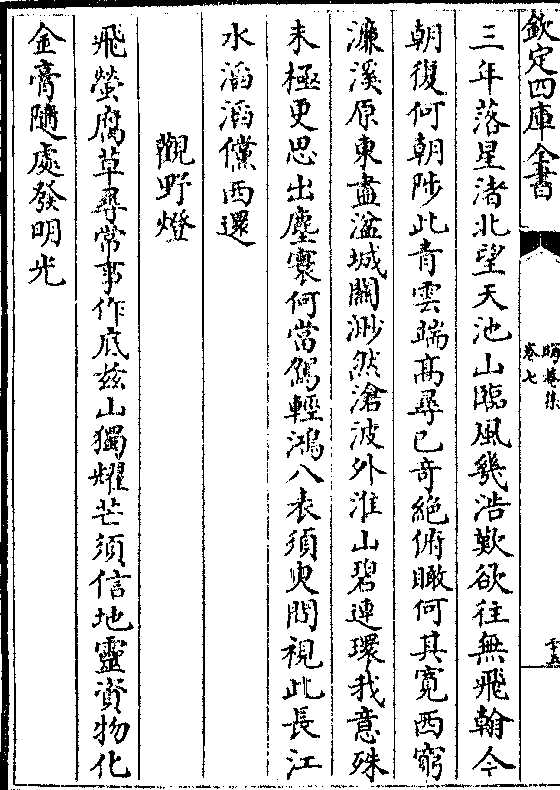 欽定四庫全書
晦菴集
卷七
三年落星渚北望天池山臨風幾浩歎欲往無飛翰今
朝復何朝陟此青雲端髙尋已奇絶俯瞰何其寛西窮
濂溪原東盡湓城關渺然滄波外淮山碧連環我意殊
未極更思出塵寰何當駕輕鴻八表須臾間視此長江
水滔滔儻西還
觀野燈
飛螢腐草尋常事作底兹山獨耀芒須信地靈資物化
金膏隨處發明光